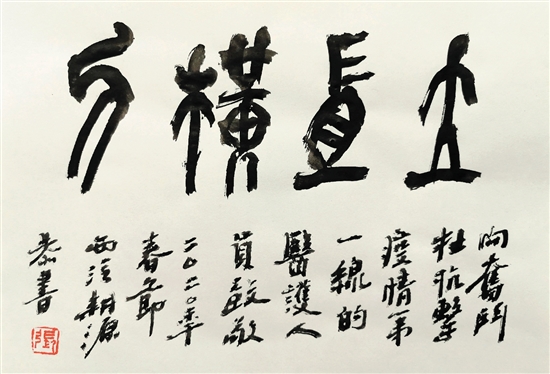 立直橫方
向奮鬥
在抗擊
疫情第
一線的
醫護人
員致敬
二〇二〇年
春節
西泠耕源
恭書
張